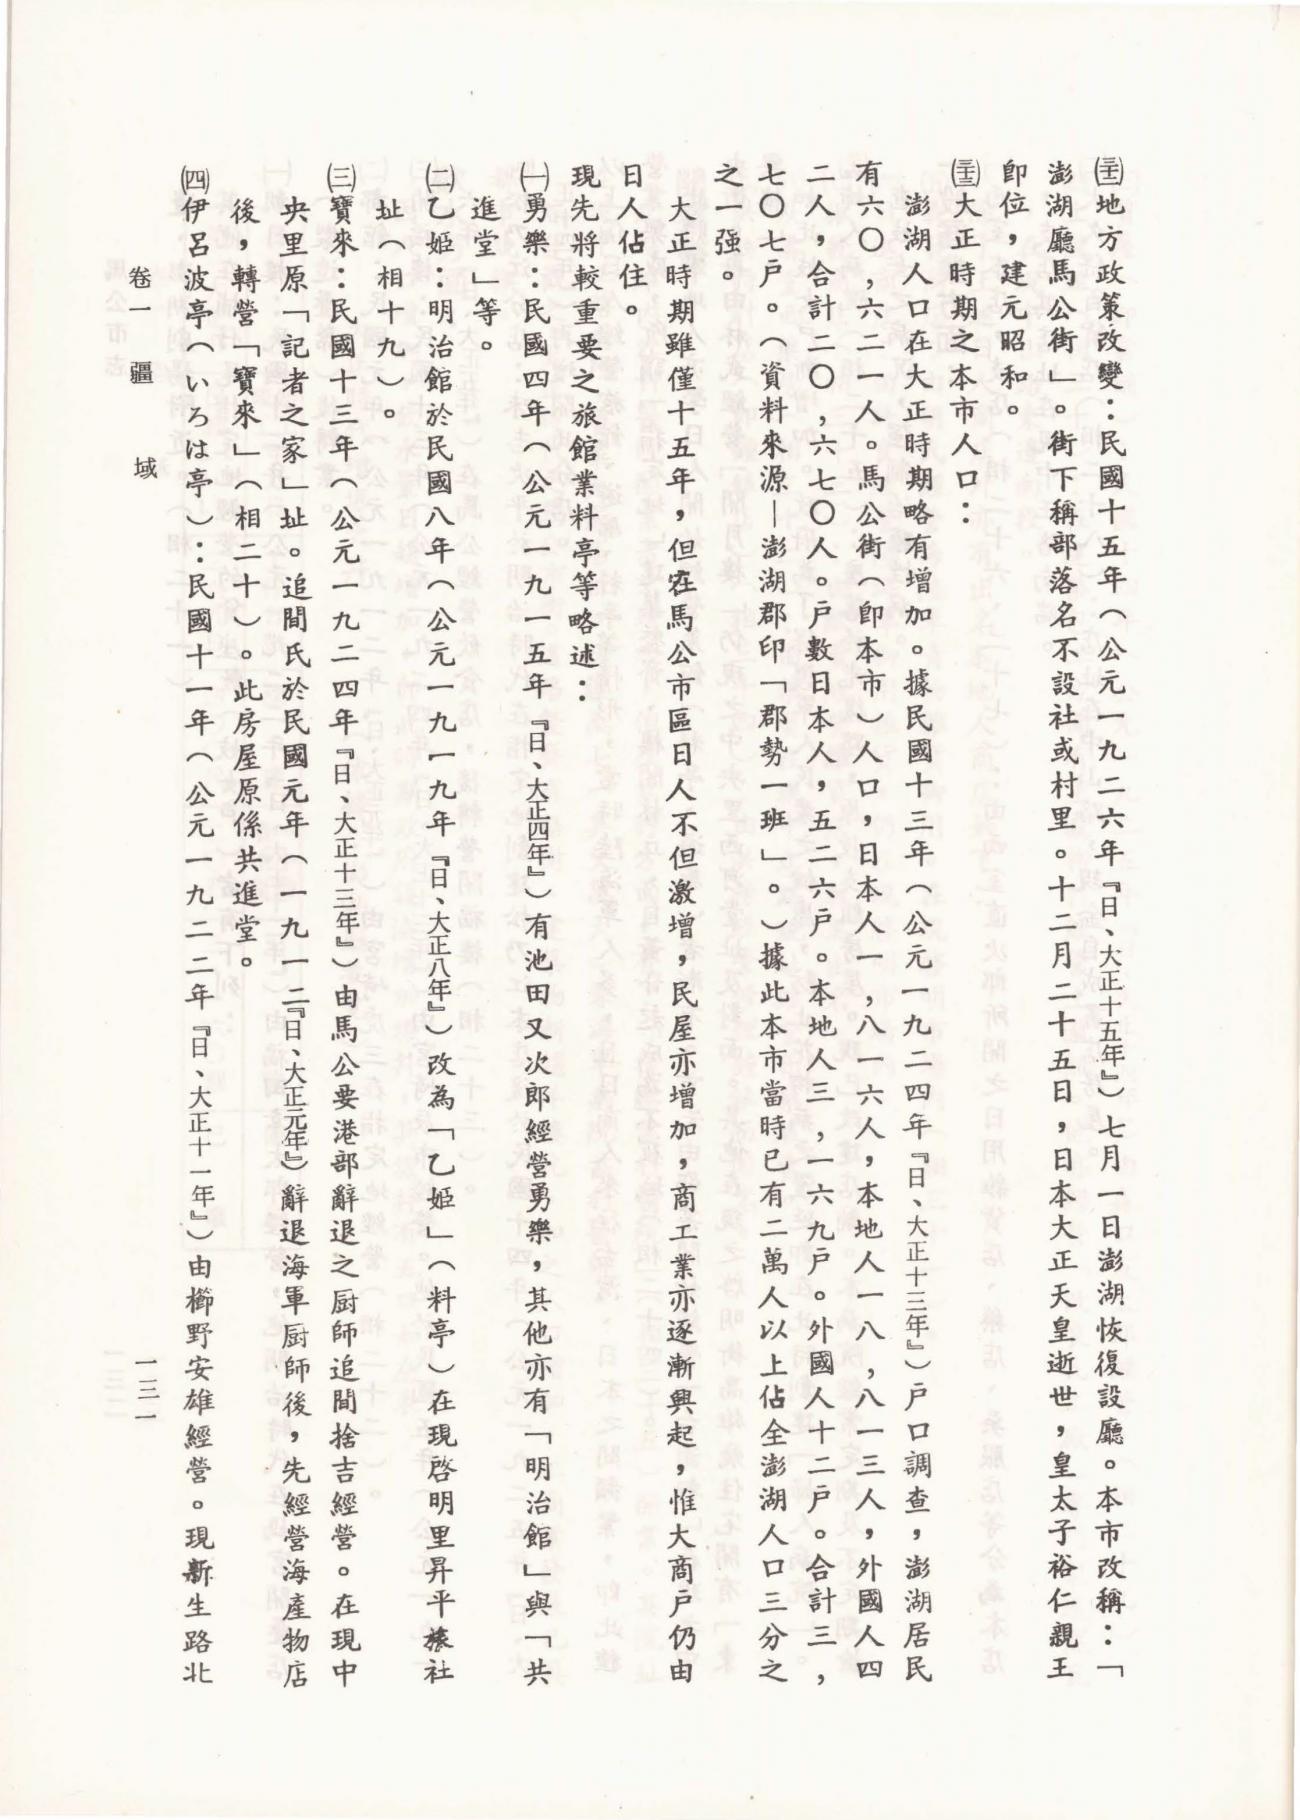 ㈩地方政策改變：民國十五年（公元一九二六年『日、大正十五年』）七月一日澎湖恢復設廳。本市改稱：「
澎湖廳馬公街」。街下稱部落名不設社或村里。十二月二十五日，日本大正天皇逝世，皇太子裕仁親王
卽位，建元昭和。
大正時期之本市人口：
澎湖人口在大正時期略有增加。據民國十三年（公元一九二四年『日、大正十三年』）戶口調查，澎湖居民
有六〇,六二一人。馬公街（卽本市）人口，日本人一,八一六人，本地人一八,八一三人，外國人四
二人，合計二〇,六七〇人。戶數日本人，五二六戶。本地人三,一六九戶。外國人十二戶。合計三,
七〇七戶。（資料來源—澎湖郡印「郡勢一班」。）據此本市當時已有二萬人以上佔全澎湖人口三分之
之一强。
大正時期雖僅十五年，但在馬公市區日人不但激增，民屋亦增加，商工業亦逐漸興起，惟大商戶仍由
日人佔住。
現先將較重要之旅館業料亭等略述：
㈠勇樂：民國四年（公元一九一五年『日、大正四年』）有池田又次郎經營勇樂，其他亦有「明治館」與「共
進堂」等。
㈡乙姬：明治館於民國八年（公元一九一九年『日、大正八年』）改為「乙姬」（料亭）在現啓明里昇平旅社
址（相十九）。
㈢寶來：民國十三年（公元一九二四年『日、大正十三年』）由馬公要港部辭退之厨師追間捨吉經營。在現中
央里原「記者之家」址。追間氏於民國元年（一九一二『日、大正元年』）辭退海軍厨師後，先經營海產物店
後，轉營「寶來」（相二十）。此房屋原係共進堂。
㈣伊呂波亭（いろは亭）：民國十一年（公元一九二二年『日、大正十一年』）由櫛野安雄經營。現新生路北
卷一 疆 域
一三一